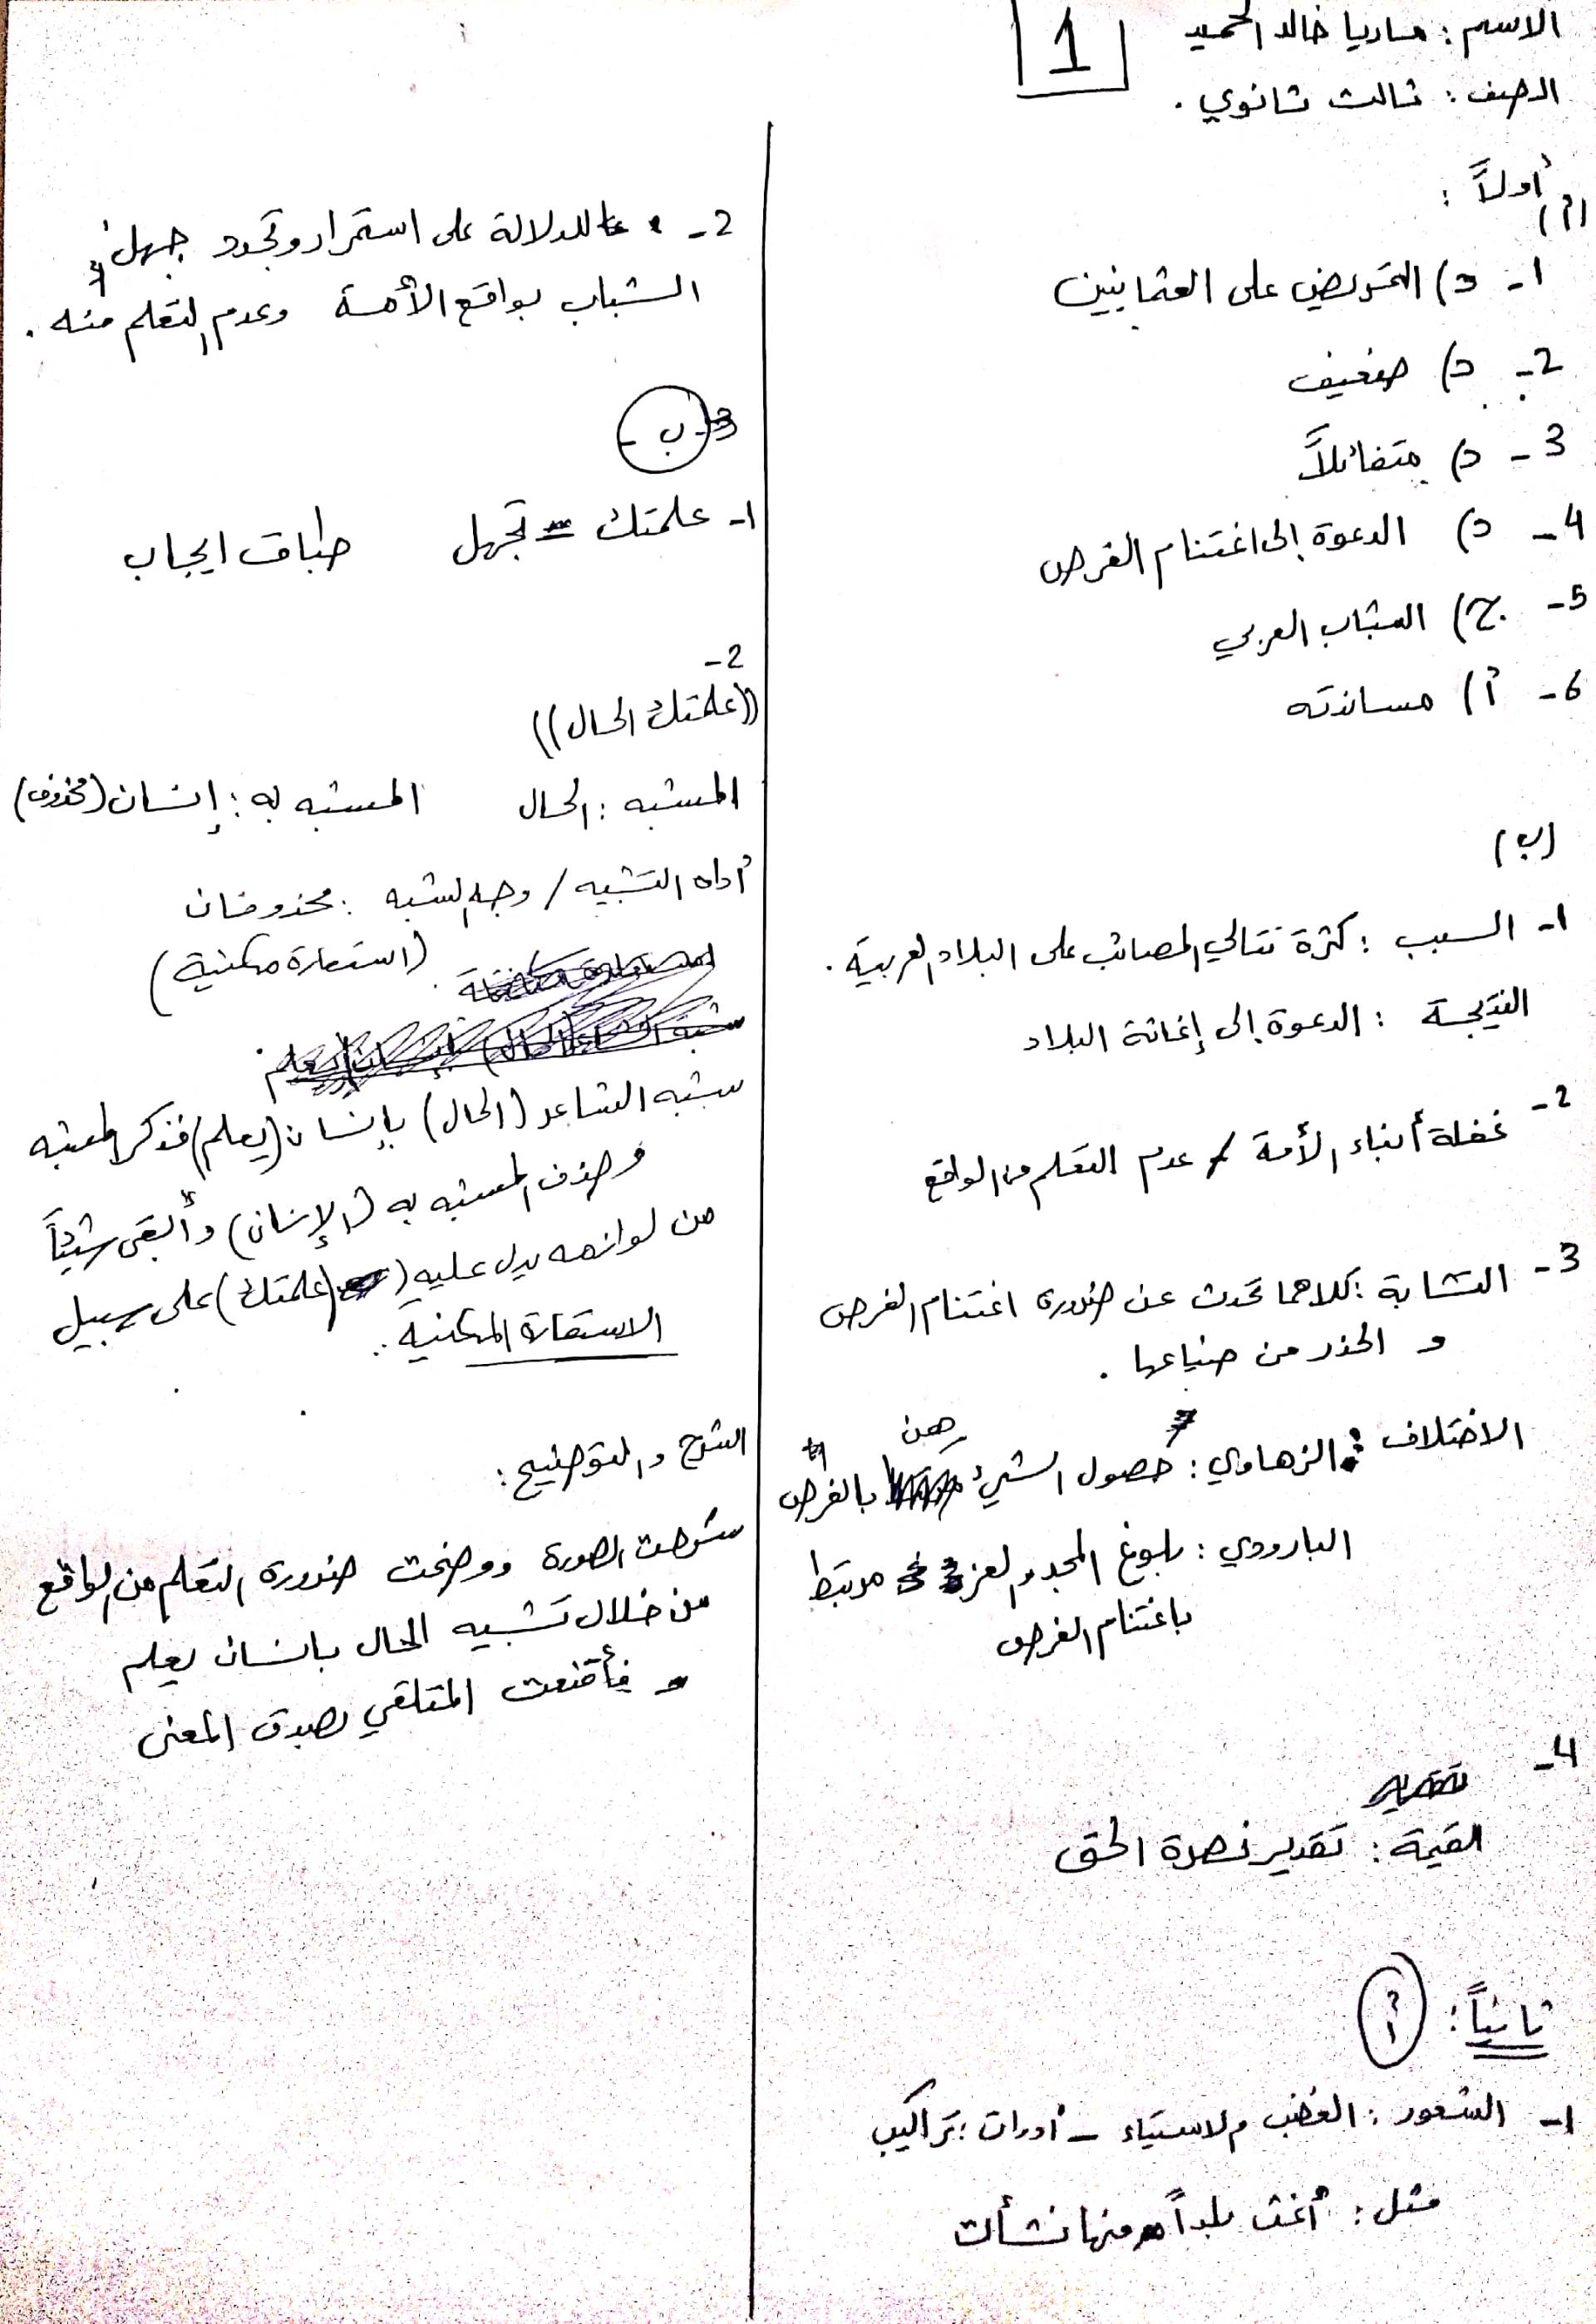 الاسم : ماريا خالد الحميد
1
الصف : ثالث ثانوي .
أولاً :
(أ)
1- د) التحريض على العثمانيين
2- د) ضعيف
3- د) متفائلاً
4- د) الدعوة إلى اغتنام الفرص
5- ج) الشباب العربي
6- أ) مساندته
(ب)
1- السبب : كثرة تتالي المصائب على البلاد العربية .
النتيجة : الدعوة إلى إغاثة البلاد
2- غفلة أبناء الأمة / عدم التعلم من الواقع
3- التشابة : كلاهما تحدث عن ضرورة اغتنام الفرص
و الحذر من ضياعها .
الاختلاف : الزهاوي : حصول الشيء رهن بالفرص
البارودي : بلوغ المجد و العز مرتبط
باغتنام الفرص
4-
القيمة : تقدير نصرة الحق
ثانياً : أ
1- الشعور : الغضب والاستياء - أدوات : تراكيب
مثل : أغث بلداً منها نشأت
2- للدلالة على استمرار وتجدد جهل
الشباب بواقع الأمة وعدم التعلم منه .
- ب -
1- علمتك = تجهل طباق ايجاب
2-
((علمتك الحال))
المشبه : الحال المشبه به : إنسان (محذوف)
أداه التشبيه / وجه الشبه : محذوفان
(استعارة مكنية)
شبه الشاعر (الحال) بإنسان (يعلم) فذكر المشبه
وحذف المشبه به (الإنسان) وأبقى شيئاً
من لوازمه يدل عليه (علمتك) على سبيل
الاستعارة المكنية .
الشرح و التوضيح :
شرحت الصورة ووضحت ضرورة التعلم من الواقع
من خلال تشبيه الحال بانسان يعلم
فأقنعت المتلقي بصدق المعنى